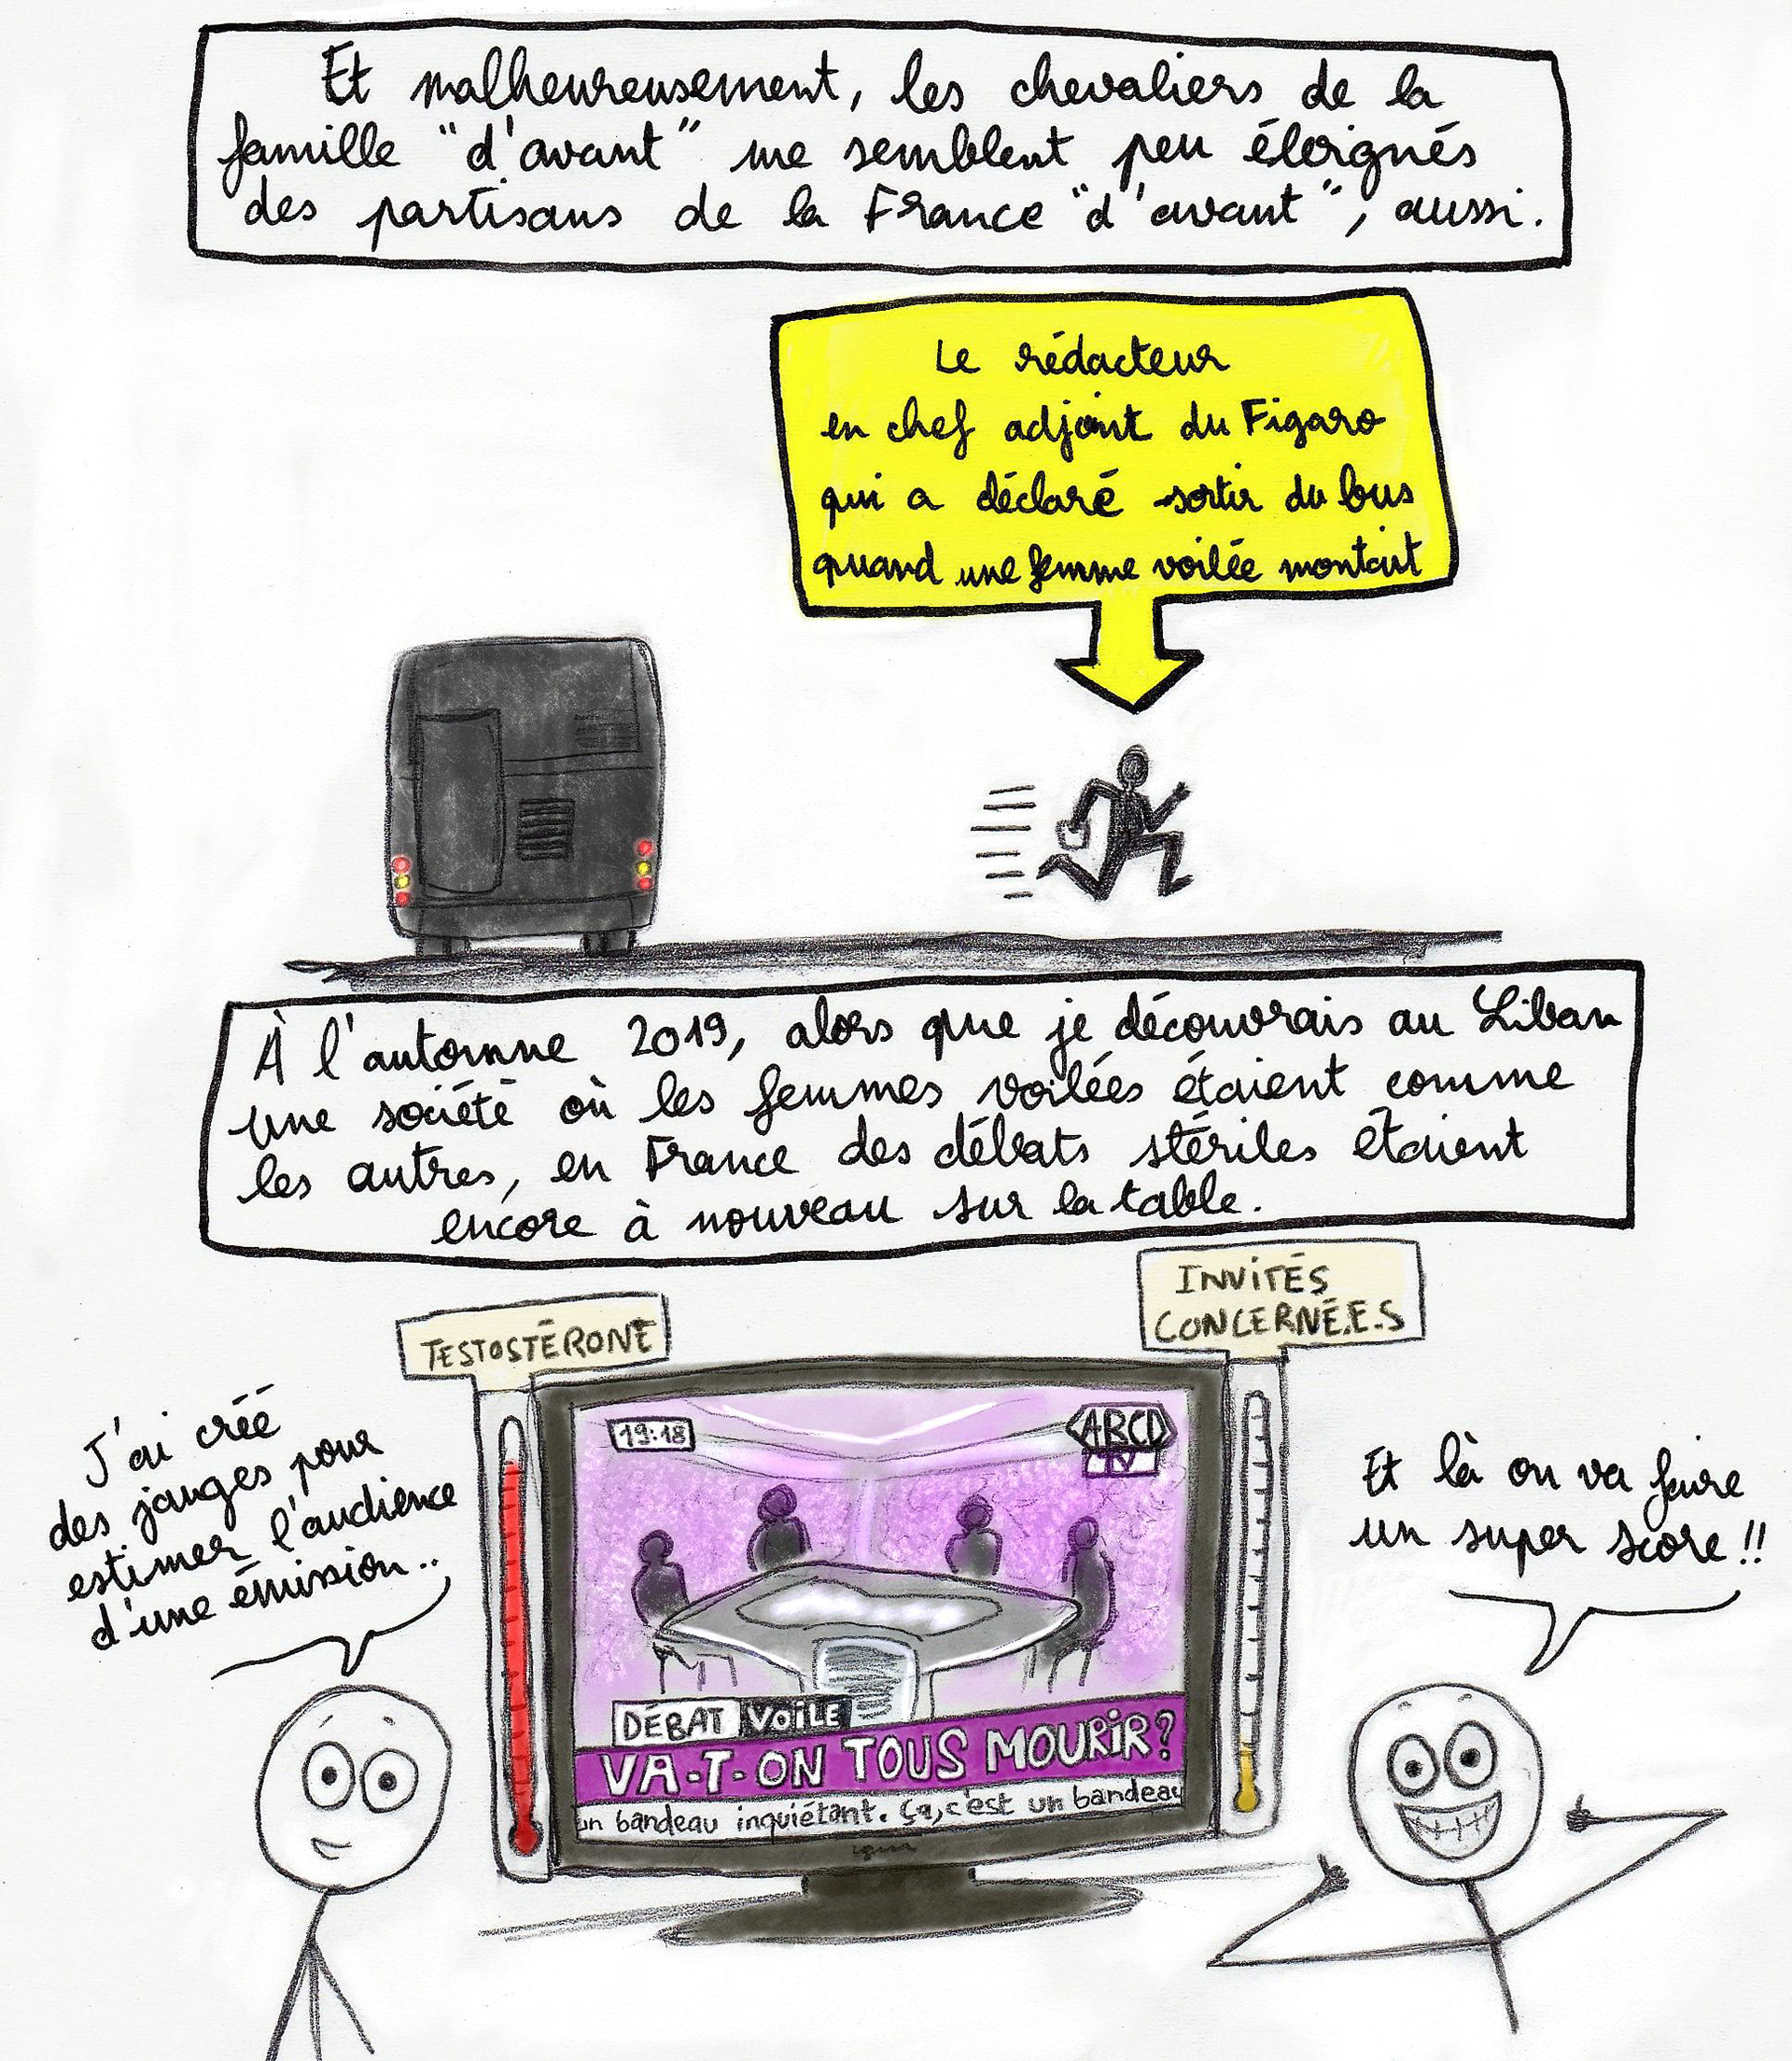 Et malheureusement, les chevaliers de la
famille "d'avant" me semblent peu éloignés
des partisans de la France "d'avant", aussi.
Le rédacteur
en chef adjoint du Figaro
qui a déclaré sortir du bus
quand une femme voilée montait
À l'automne 2019, alors que je découvrais au Liban
une société où les femmes voilées étaient comme
les autres, en France des débats stériles étaient
encore à nouveau sur la table.
TESTOSTÉRONE
INVITÉS
CONCERNÉ.E.S
J'ai créé
des jauges pour
estimer l'audience
d'une émission..
19:18
ABCD
TV
Et là on va faire
un super score!!
DÉBAT VOILE
VA-T-ON TOUS MOURIR?
un bandeau inquiétant. Ça, c'est un bandeau